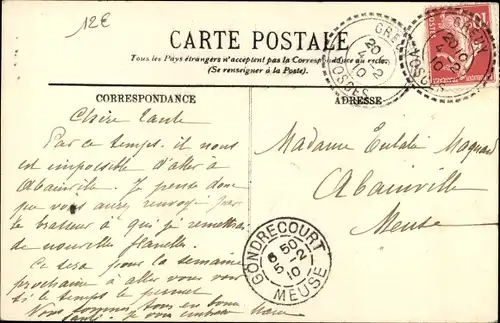 12€
CARTE POSTALE
Tous les Pays étrangers n'acceptent pas la Correspondance au recto.
(Se renseigner à la Poste).
CORRESPONDANCE
ADRESSE
Chère tante
Par ce temps il nous
est impossible d'aller à
Abainville. Je pense donc
que vous aurez renvoyé par
le brasseur à qui je remettrai
de nouvelles flanelles.
Ce sera pour la semaine
prochaine à aller vous voir
si le temps le permet
Nous sommes tous en bonne
santé. Je vous embrasse
Madame Eulalie Magnard
Abainville
Meuse
GONDRECOURT
6 50
5 - 2
10
MEUSE
20
4 - 2
10
20
4 - 2
10
10